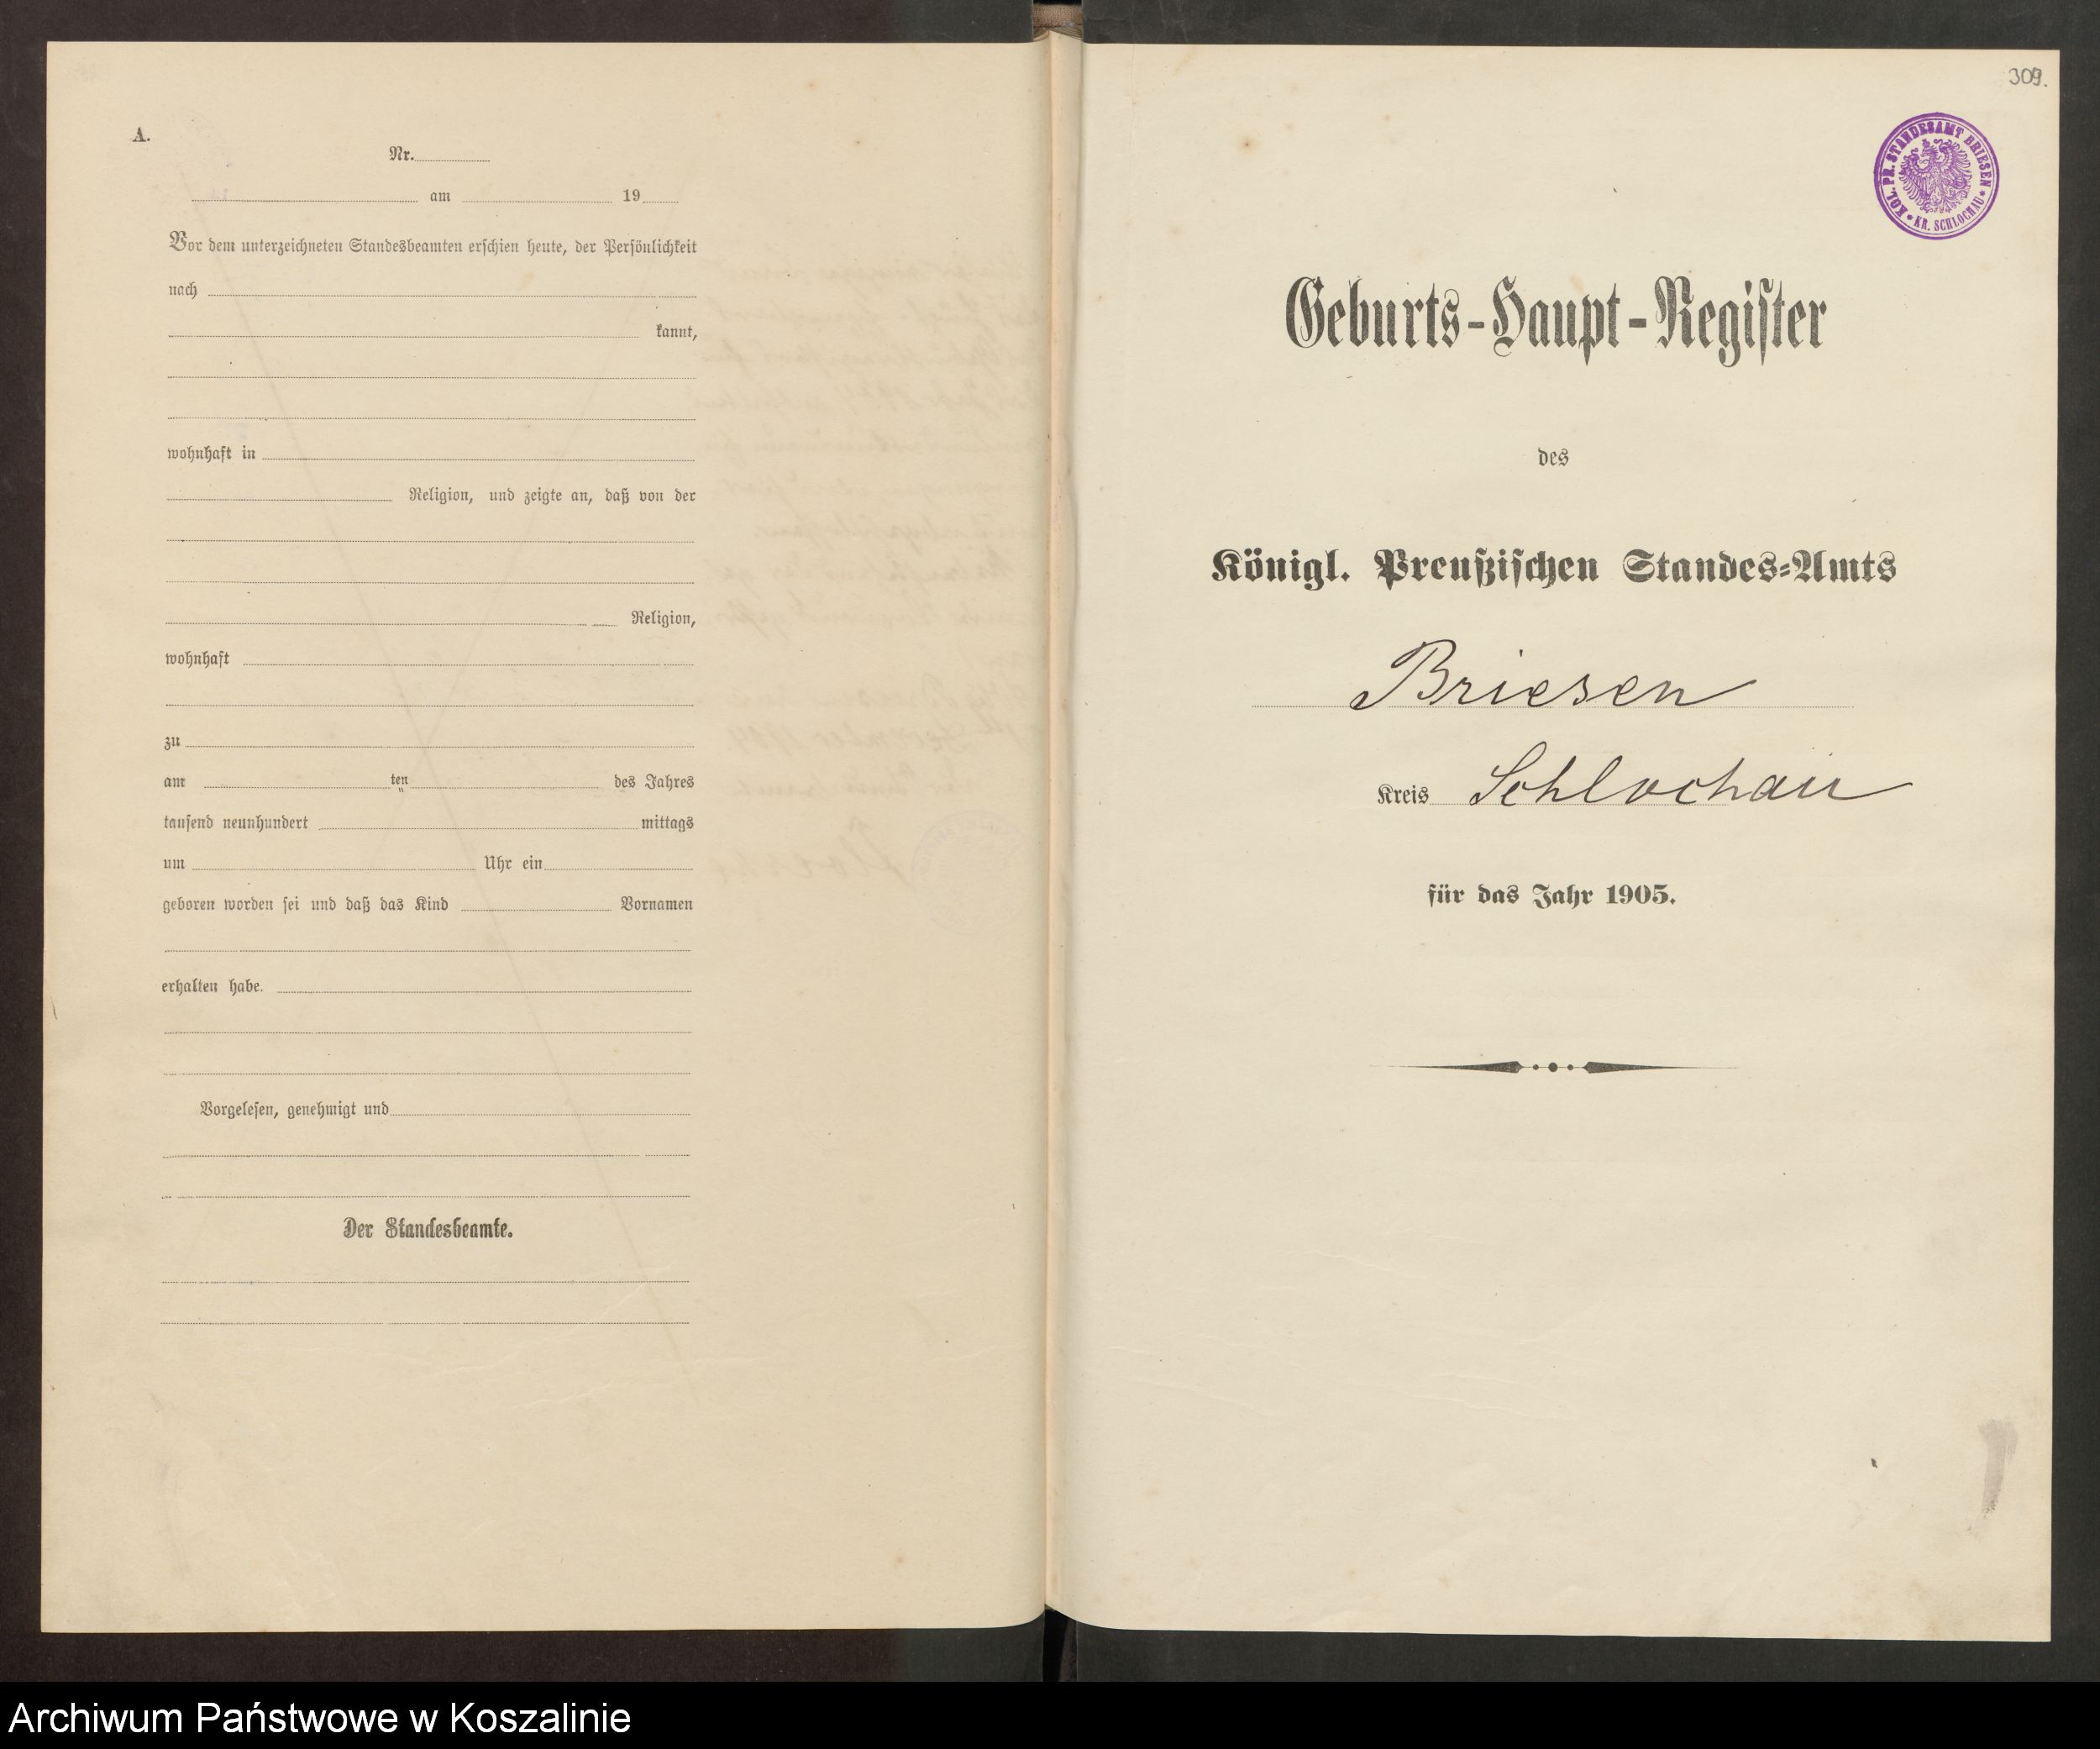 A.
Nr.
am 19
Vor dem unterzeichneten Standesbeamten erschien heute, der Persönlichkeit
nach
kannt,
wohnhaft in
Religion, und zeigte an, daß von der
Religion,
wohnhaft
zu
am ten des Jahres
tausend neunhundert mittags
um Uhr ein
geboren worden sei und daß das Kind Vornamen
erhalten habe.
Vorgelesen, genehmigt und
Der Standesbeamte.
309.
KGL. PR. STANDESAMT BRIESEN
KR. SCHLOCHAU
Geburts-Haupt-Register
des
Königl. Preußischen Standes-Amts
Briesen
Kreis Schlochau
für das Jahr 1905.
Archiwum Państwowe w Koszalinie